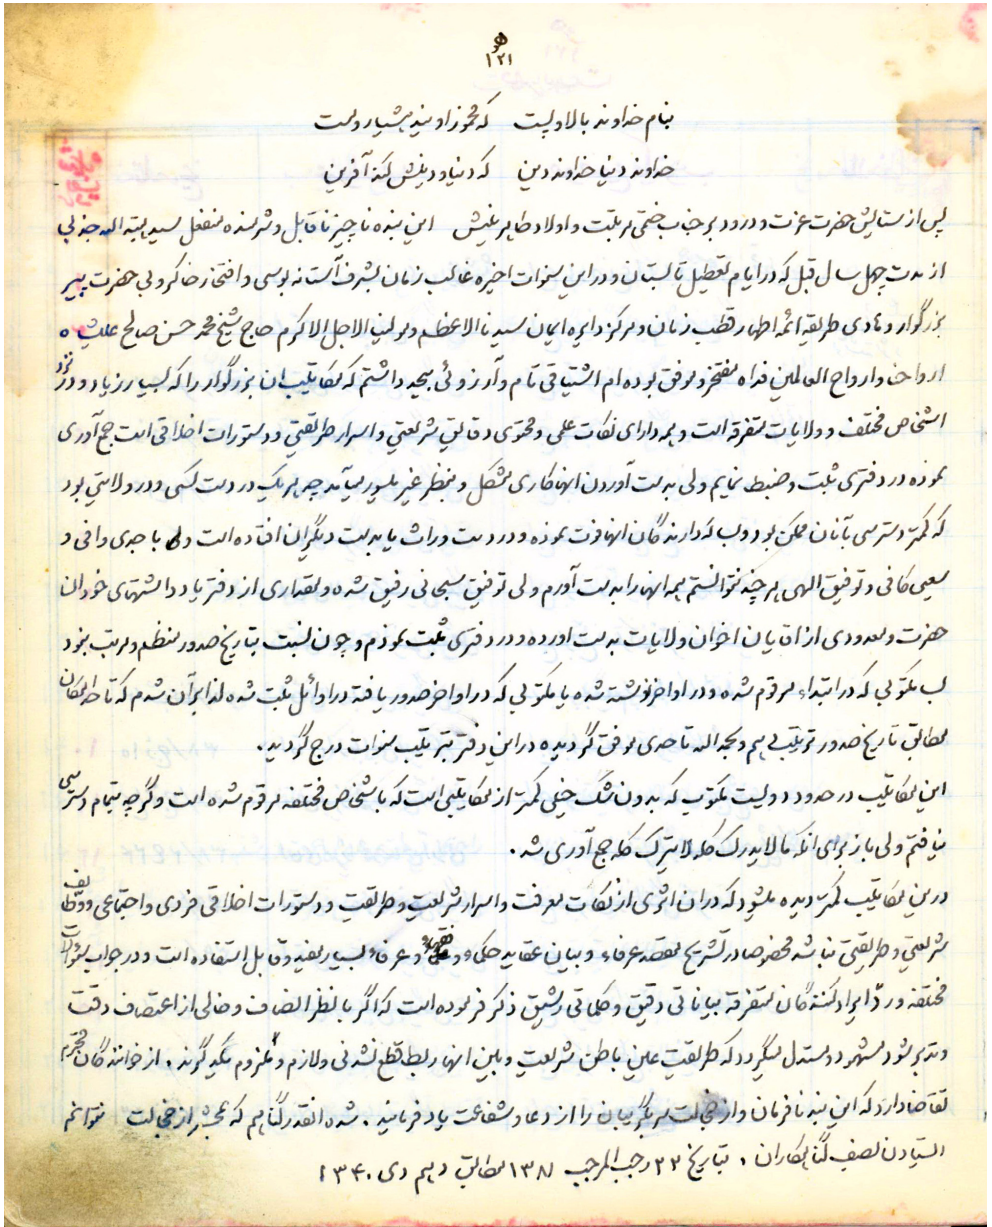 هو
۱۲۱
بنام خداوند بالا و پست که مخموز اویند هشیار و مست
خداوند دنیا خداوند دین که دنیا و دینش کند آفرین
پس از ستایش حضرت عزت و درود بر جناب ختمی مرتبت و اولاد طاهرینش این بنده ناچیز ناقابل و شرمنده منفعل سید هبة اله جذبی
از مدت چهل سال قبل که در ایام تعطیل تابستان و در این سنوات اخیره غالب زمان بشرف آستانه بوسی و افتخار خاکروبی حضرت پیر
بزرگوار و هادی طریقه ائمه اطهار قطب زمان و مرکز دایره ایمان سیدنا الاعظم و مولینا الاجل الاکرم حاج شیخ محمد حسن صالح علیشاه
ارواحنا و ارواح العالمین فداه مفتخر و موفق بوده ام اشتیاقی تام و آرزوئی بیحد داشتم که مکاتیب ان بزرگوار را که بسیار زیاد و در نزد
اشخاص مختلف و ولایات متفرقه است و همه دارای نکات علمی و محتوی دقایق شریعتی و اسرار طریقتی و دستورات اخلاقی است جمع آوری
نموده در دفتری ثبت و ضبط نمایم ولی بدست آوردن انها کاری مشکل و بنظر غیر میسور میآمد چه هر یک در دست کسی و در ولایتی بود
که کمتر دسترسی بآنان ممکن بود و بسا که دارندگان انها فوت نموده و در دست وراث یا بدست دیگران افتاده است ولی با جدی وافی و
سعیی کافی و توفیق الهی هر چند نتوانستم همه انها را بدست آورم ولی توفیق سبحانی رفیق شده و مقداری از دفتر یادداشتهای خود ان
حضرت و معدودی از اقایان اخوان ولایات بدست اورده و در دفتری ثبت نمودم و چون نسبت بتاریخ صدور منظم و مرتب نبود
بسا مکتوبی که در ابتداء مرقوم شده و در اواخر نوشته شده یا مکتوبی که در اواخر صدور یافته در اوائل ثبت شده لذا بر آن شدم که تا حد امکان
مطابق تاریخ صدور ترتیب دهم و بحمد اله تا حدی موفق گردیده در این دفتر بترتیب سنوات درج گردید.
این مکاتیب در حدود دویست مکتوب که بدون شک خیلی کمتر از مکاتیبی است که باشخاص مختلفه مرقوم شده است و گرچه بتمام دسترسی
نیافتم ولی باز برای انکه مالایدرک کله لایترک کله جمع آوری شد.
در بین مکاتیب کمتر دیده میشود که در ان اثری از نکات معرفت و اسرار شریعت و طریقت و دستورات اخلاقی فردی و اجتماعی و وظایف
شریعتی و طریقتی نباشد مخصوصا در تشریح مقصد عرفاء و بیان عقاید حکماء و فقهاء و عرفاء بسیار مفید و قابل استفاده است و در جواب سئوالات
مختلفه و رد ایراد کنندگان متفرقه بیاناتی دقیق و کلماتی رشیق ذکر فرموده است که اگر بانظر انصاف و خالی از اعتصاف دقت
و تدبر شود مشهود و مستدل میگردد که طریقت عین باطن شریعت و بین انها ربط قطع نشدنی و لازم و ملزوم یکدیگرند. از خوانندگان محترم
تقاضا دارد که این بنده نافرمان و از خجالت سر بگریبان را از دعا و شفاعت یاد فرمایند. شده انقدر گناهم که بمحشر از خجالت نتوانم
ایستادن بصف گناهکاران. بتاریخ ۲۳ رجب المرجب ۱۳۸۱ مطابق دهم دی ۱۳۴۰